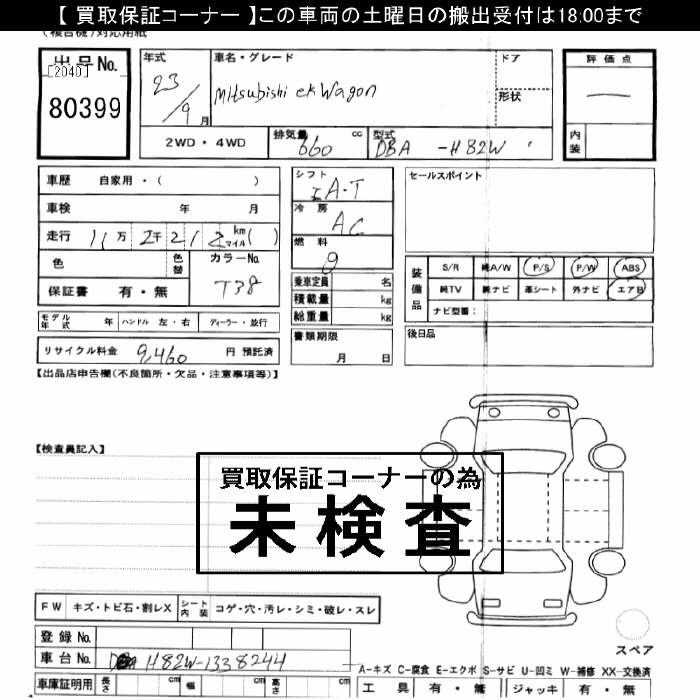 【 買取保証コーナー 】この車両の土曜日の搬出受付は18:00まで
(複合機)対応用紙
出品No. 年式 車名・グレード ドア 評価点
[2040]
80399 23/9月 Mitsubishi ek Wagon 形状 —
内装
2WD・4WD 排気量 660 cc 型式 DBA -H82W
車歴 自家用・( )
車検 年 月
走行 11万2千212 km マイル( )
色 色替 カラーNo.
保証書 有・無 T38
モデル年式 年 ハンドル 左・右 ディーラー・並行
リサイクル料金 9,460 円 預託済
シフト IA-T
冷房 AC
燃料 g
乗車定員 名
積載量 kg
総重量 kg
書類期限
月 日
セールスポイント
装備品 S/R 純A/W P/S P/W ABS
純TV 純ナビ 革シート 外ナビ エアB
ナビ型番:
後日品
【出品店申告欄(不良箇所・欠品・注意事項等)】
【検査員記入】
買取保証コーナーの為
未検査
FW キズ・トビ石・割レX シート内装 コゲ・穴・汚レ・シミ・破レ・スレ
スペア
登録 No.
車台 No. DBA H82W-1338244
A-キズ C-腐食 E-エクボ S-サビ U-凹ミ W-補修 XX-交換済
車庫証明用 長さ cm 幅 cm 高さ cm 工具 有・無 ジャッキ 有・無